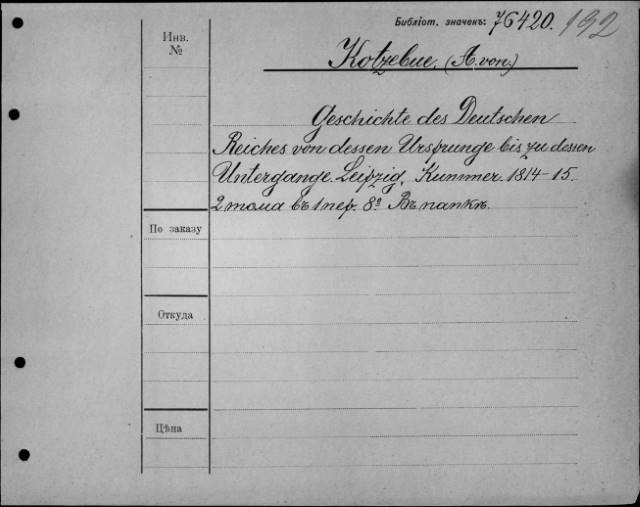 Библіот. значекъ: 76420. 192
Инв.
№
Kotzebue, (A. von.)
Geschichte des Deutschen
Reiches von dessen Ursprunge bis zu dessen
Untergange. Leipzig, Kummer. 1814-15.
2 тома въ 1 пер. 8º Въ папкѣ.
По заказу
Откуда
Цѣна